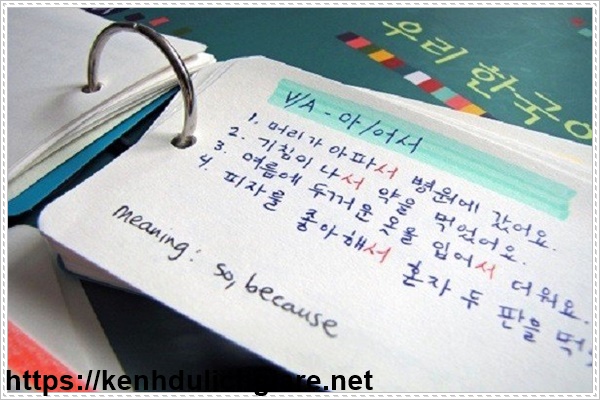 우리 한국어
V/A - 아/어서
1. 머리가 아파서 병원에 갔어요.
2. 기침이 나서 약을 먹었어요.
3. 여름에 두꺼운 옷을 입어서 더워요.
4. 피자를 좋아해서 혼자 두 판을
meaning: so, because